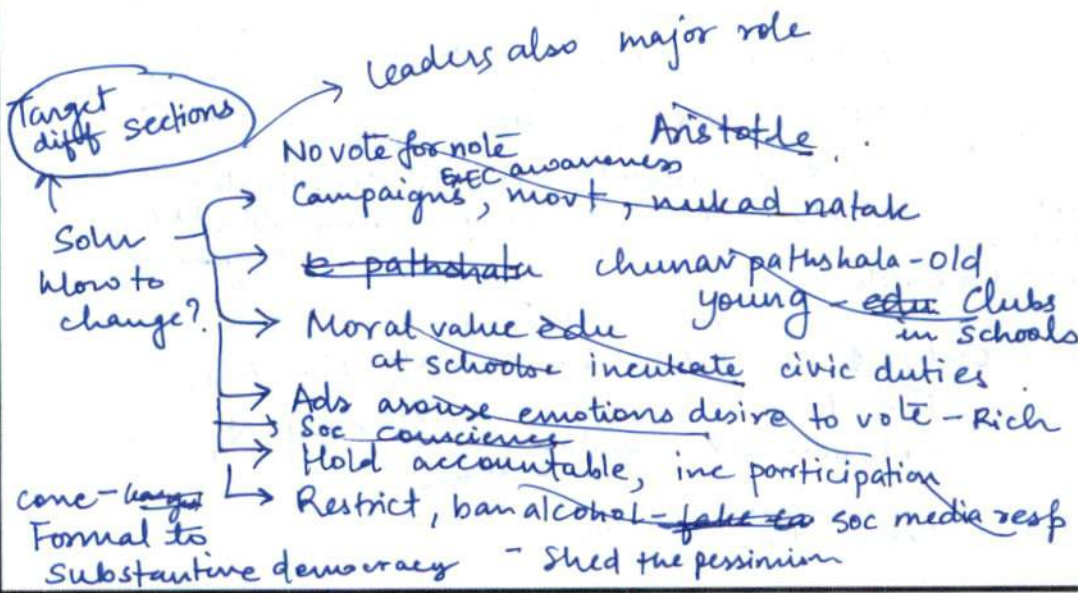 Leaders also major role
Target
diff sections
Aristotle
No vote for note
EC awareness
Campaigns, movt, nukad natak
Soln
How to
change?
e-pathshala chunav pathshala - old
young - edu Clubs
in Schools
Moral value edu
at schools inculcate civic duties
Ads arouse emotions desire to vote - Rich
Soc conscience
Hold accountable, inc participation
Restrict, ban alcohol - fake soc media resp
conc -
Formal to
Substantive democracy - Shed the pessimism